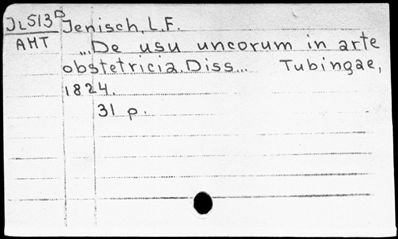 JL513D Jenisch, L.F.
AHT
...De usu uncorum in arte
obstetricia. Diss... Tubingae,
1824.
31 p.